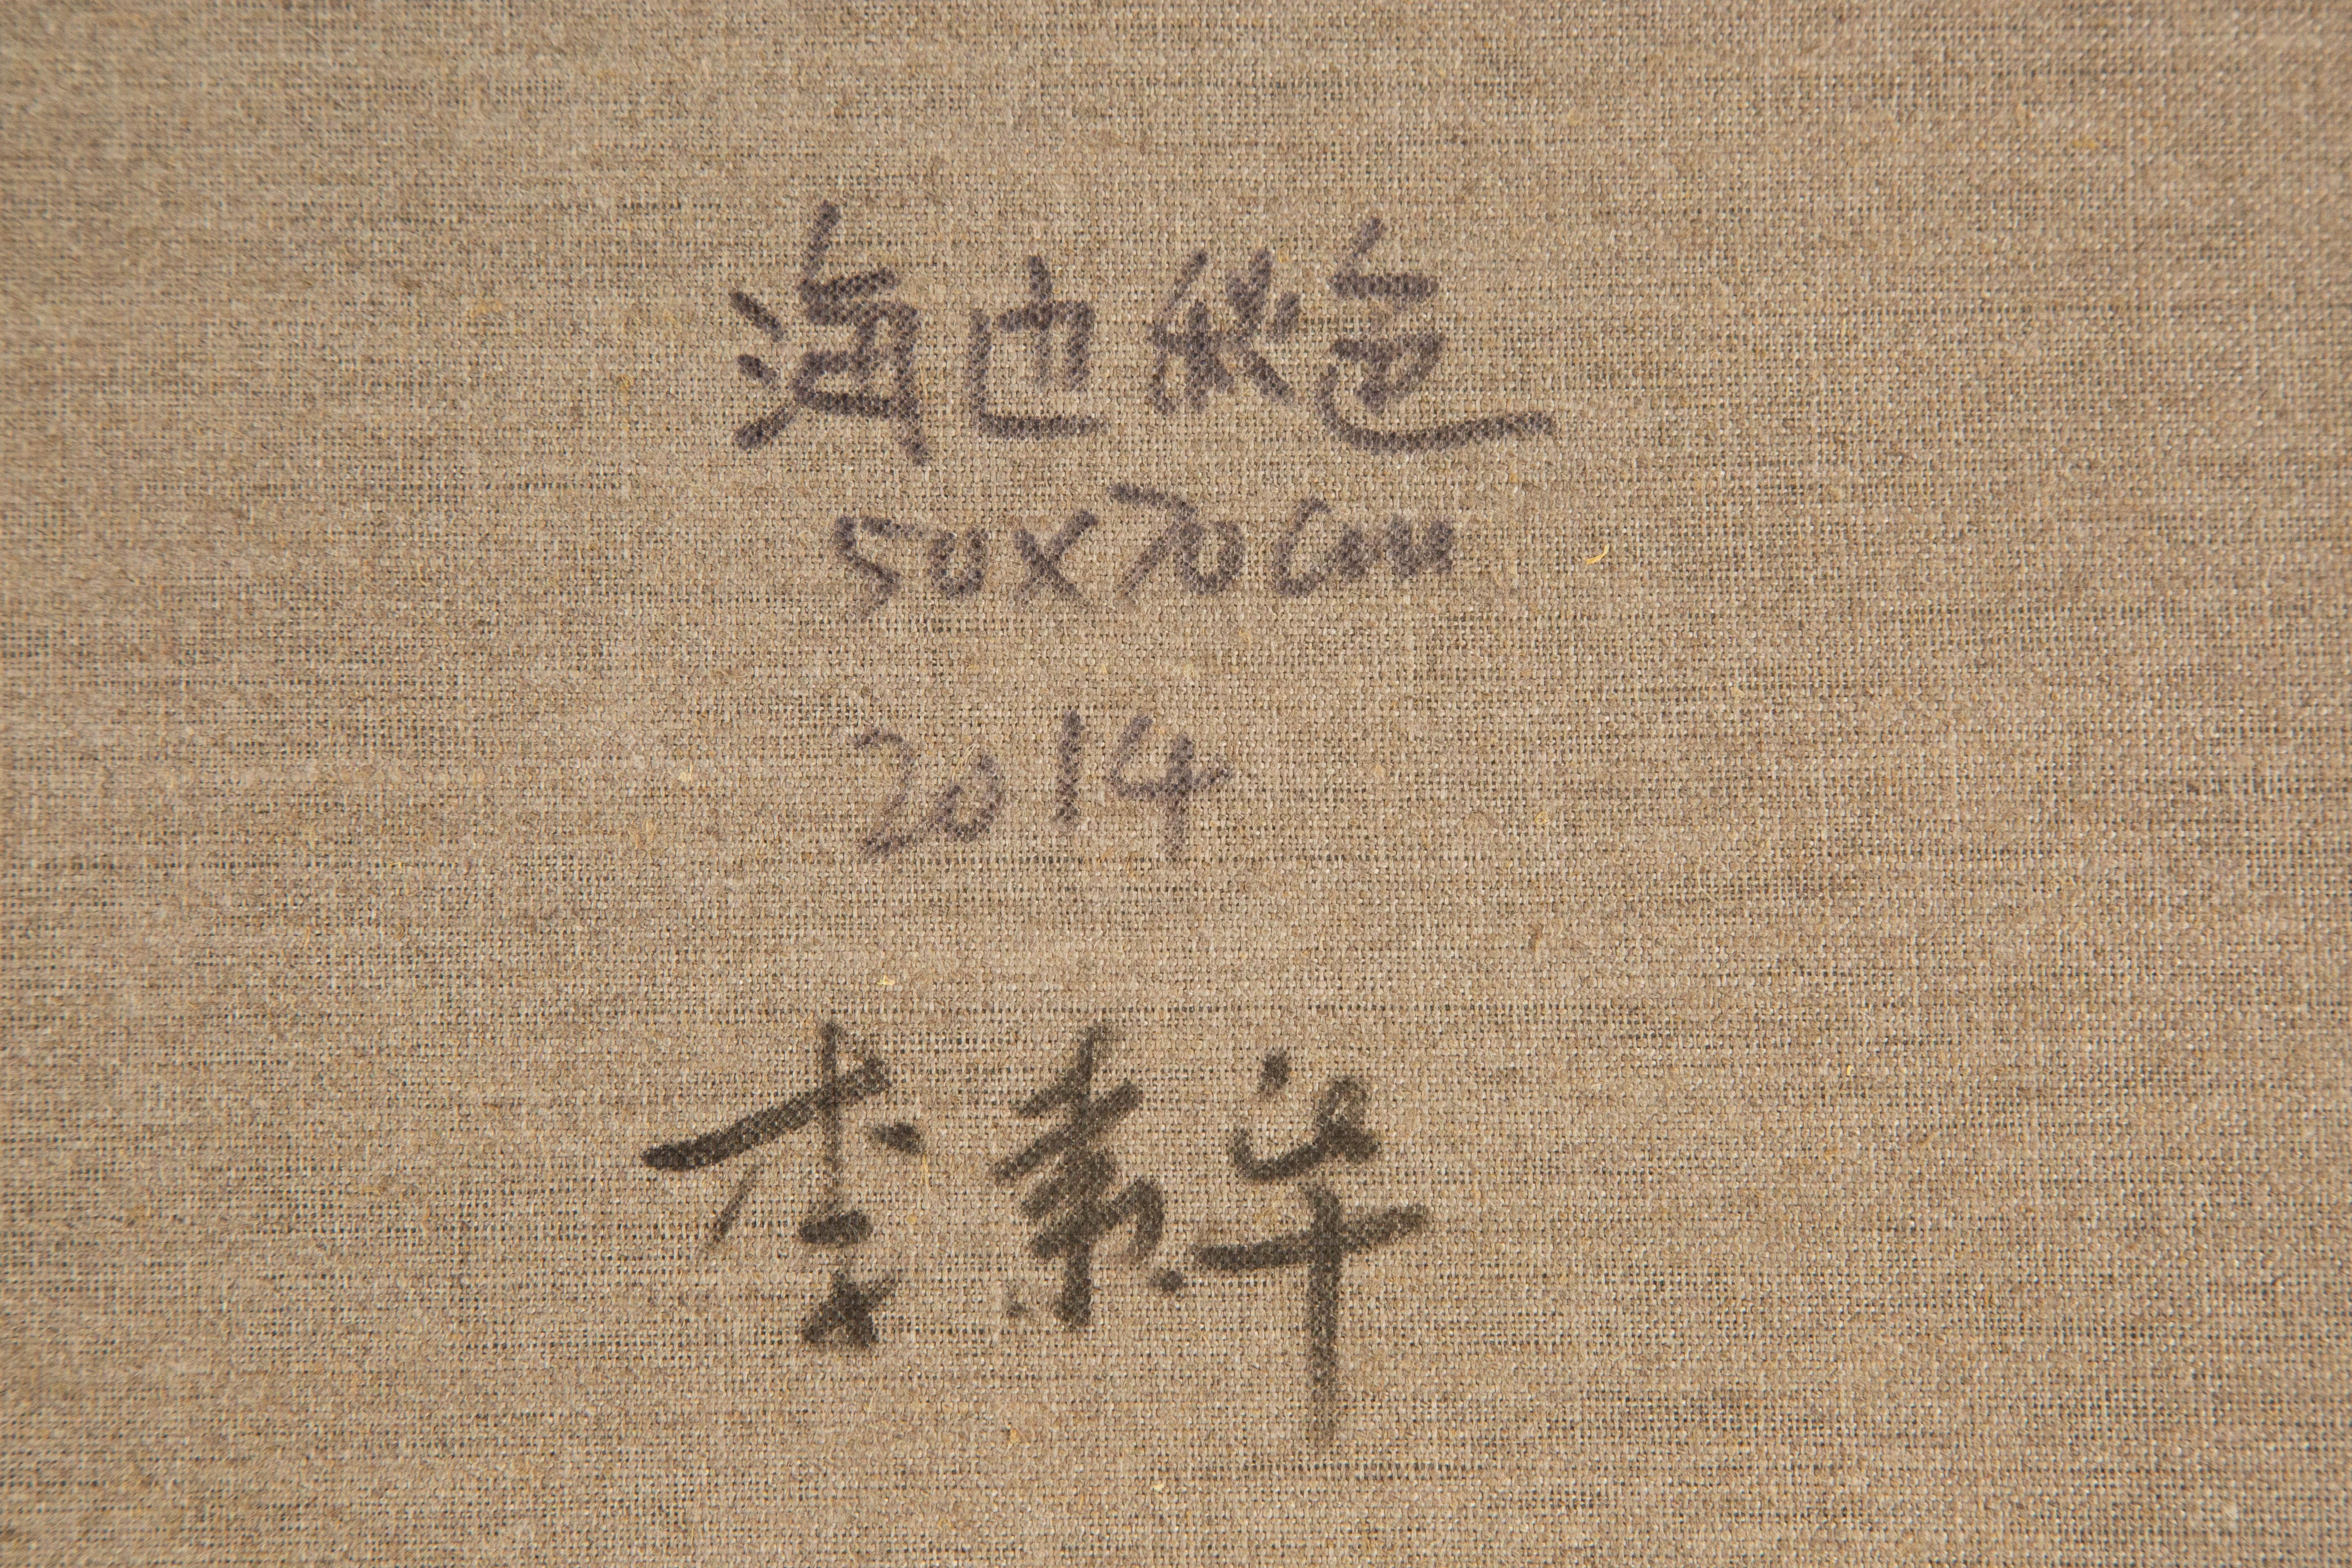 海边秋色
50x70cm
2014
李素华